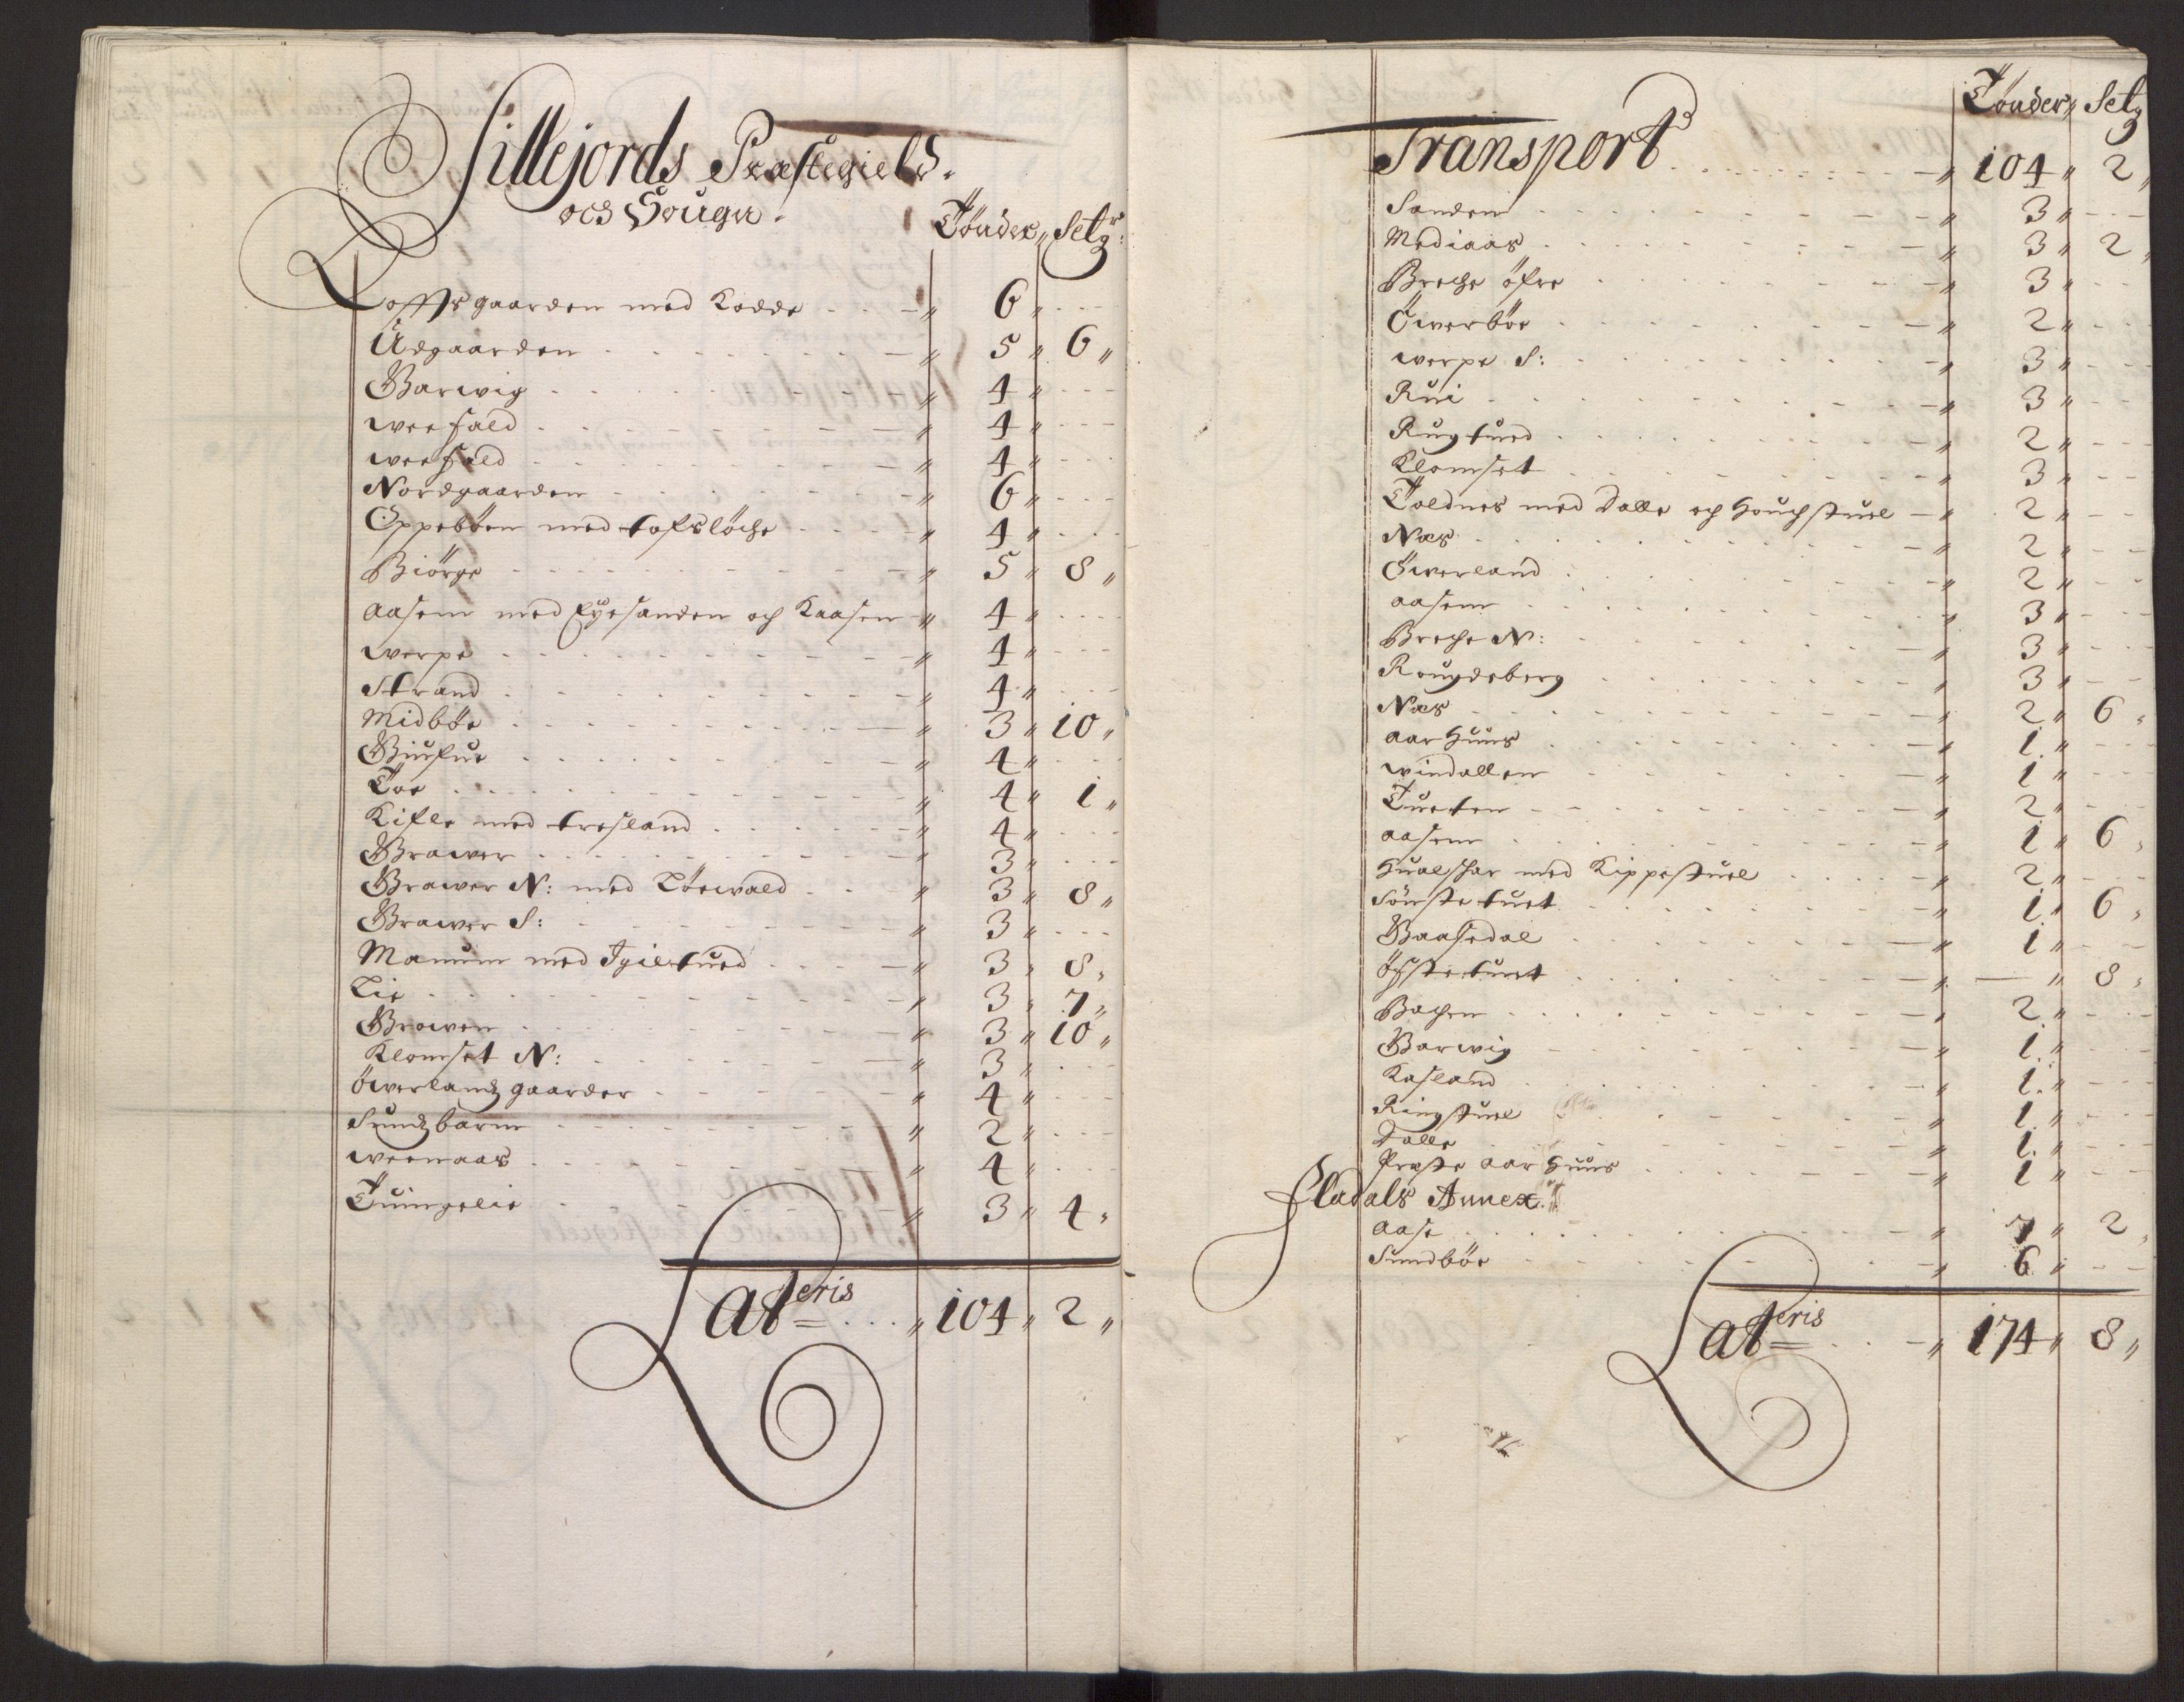 Sillejords Præstegield.
och Sougn.
Tönder Setg:
Loffsgaarden med Kodde 6
Udgaarden 5 6
Barwig 4
weefald 4
weefald 4
Nordgaarden 6
Oppebøen med tofsløche 4
Biörge 5 8
Aasem med Eyesanden och Kaasen 4
werpe 4
Strand 4
Midbøe 3 10
Biufue 4
Toe 4 1
Kifle med tresland 4
Brawer 3
Brawer N: med Löewald 3 8
Brawer S: 3
Manum med Igiletued 3 8
Lie 3 7
Browen 3 10
Klomset N: 3
Öwerlandz gaarder 4
Sundzbarm 2
weenaas 4
Tuingelie 3 4
Lateris 104 2
Tönder Setg
Transport 104 2
Sanden 3
Mediaas 3 2
Breche öfre 3
Öwerböe 2
werpe S: 3
Rui 3
Rugtued 2
Klomset 3
Toldnes med Dalle och Houchstuel 2
Næs 2
Öwerland 2
Aasem 3
Breche N: 3
Rougdeberg 3
Næs 2 6
Aarhuus 1
windallen 1
Tueten 2
Aasem 1 6
Hualschar med Kippestuel 2
Sönste tuet 1 6
Baasedal 1
öchste tuet — 8
Bachen 2
Barwig 1
Kasland 1
Ringstuel 1
Dalle 1
Prest Aarhuus 1
Fladals Annex.
Aase 7 2
Sundböe 6
Lateris 174 8